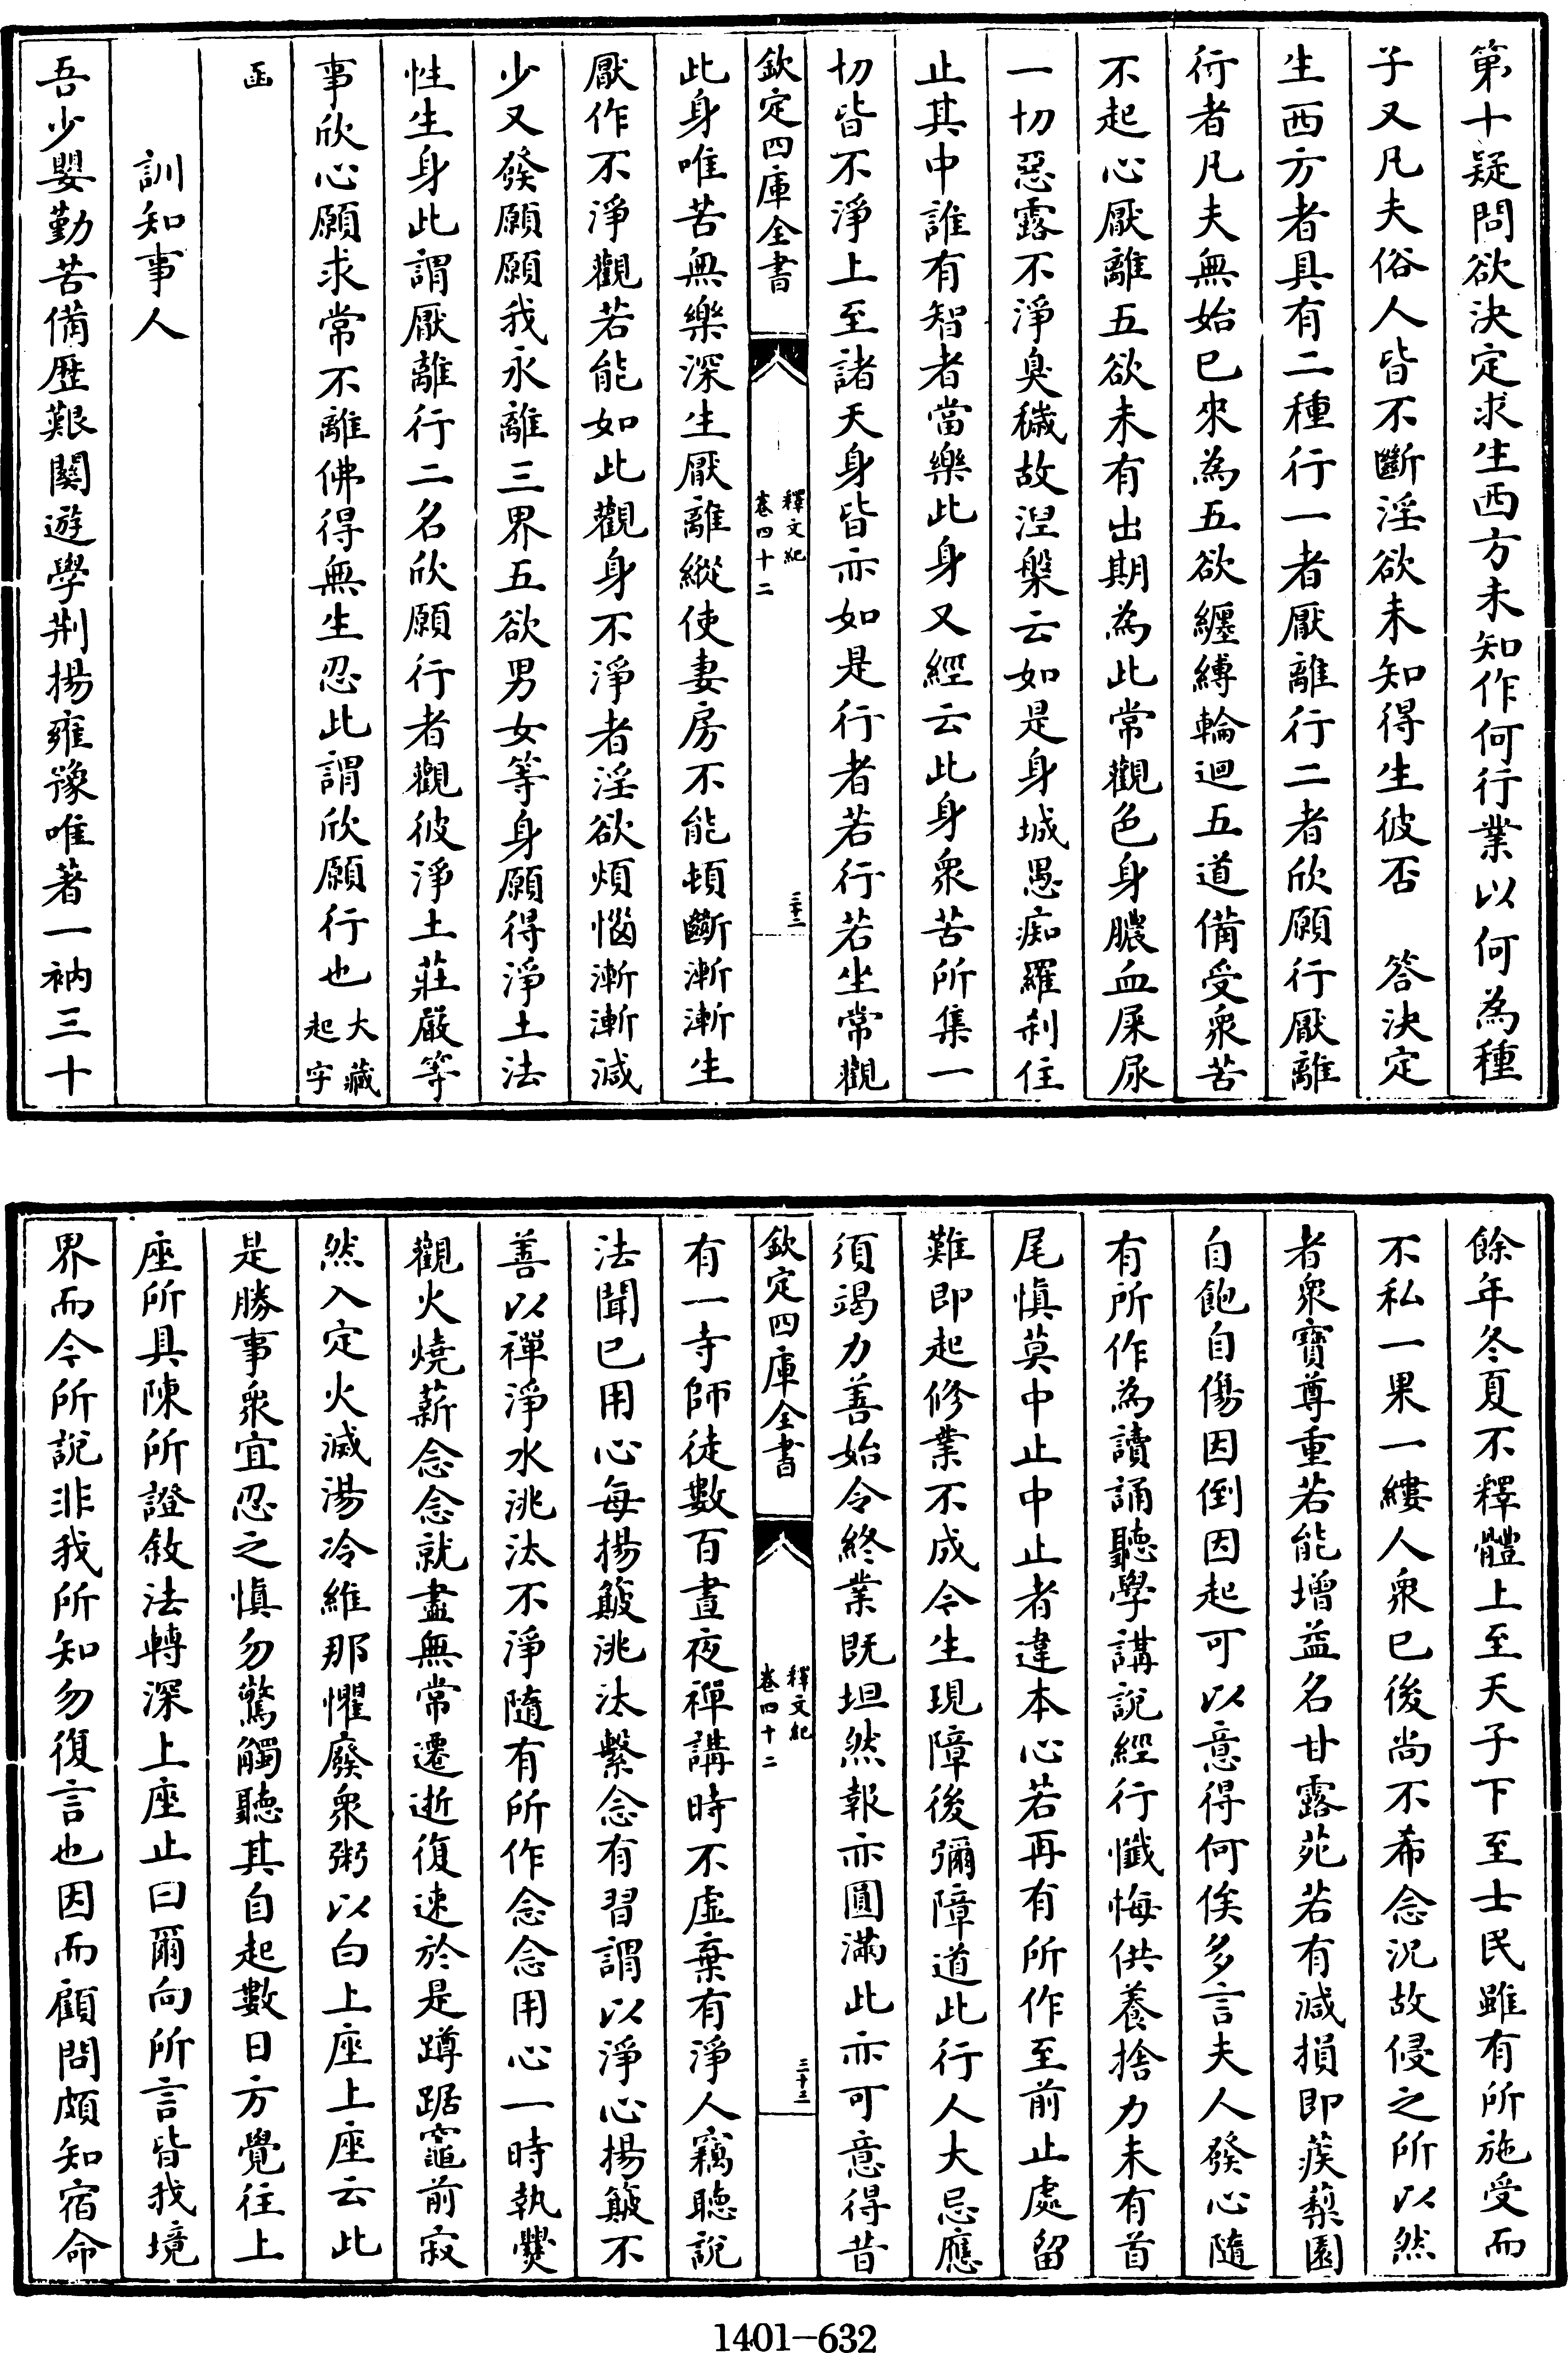 第十疑問欲決定求生西方未知作何行業以何為種
子又凡夫俗人皆不斷淫欲未知得生彼否　答決定
生西方者具有二種行一者厭離行二者欣願行厭離
行者凡夫無始已來為五欲纏縛輪迴五道備受衆苦
不起心厭離五欲未有出期為此常觀色身膿血屎尿
一切惡露不淨臭穢故涅槃云如是身城愚痴羅刹住
止其中誰有智者當樂此身又經云此身衆苦所集一
切皆不淨上至諸天身皆亦如是行者若行若坐常觀
欽定四庫全書
釋文紀
卷四十二
三十二
此身唯苦無樂深生厭離縱使妻房不能頓斷漸漸生
厭作不淨觀若能如此觀身不淨者淫欲煩惱漸漸減
少又發願願我永離三界五欲男女等身願得淨土法
性生身此謂厭離行二名欣願行者觀彼淨土莊嚴等
事欣心願求常不離佛得無生忍此謂欣願行也大藏
起字
函
訓知事人
吾少嬰勤苦備歷艱關遊學荆揚雍豫唯著一衲三十
餘年冬夏不釋體上至天子下至士民雖有所施受而
不私一果一縷人衆已後尚不希念況故侵之所以然
者衆寶尊重若能增益名甘露苑若有減損即蒺藜園
自飽自傷因倒因起可以意得何俟多言夫人發心隨
有所作為讀誦聽學講説經行懺悔供養捨力未有首
尾慎莫中止中止者違本心若再有所作至前止處留
難即起修業不成今生現障後彌障道此行人大忌應
須竭力善始令終業既坦然報亦圓滿此亦可意得昔
欽定四庫全書
釋文紀
卷四十二
三十三
有一寺師徒數百晝夜禪講時不虛棄有淨人竊聽説
法聞已用心每揚簸洮汰繫念有習謂以淨心揚簸不
善以禪淨水洮汰不淨隨有所作念念用心一時執㸑
觀火燒薪念念就盡無常遷逝復速於是蹲踞竈前寂
然入定火滅湯冷維那懼廢衆粥以白上座上座云此
是勝事衆宜忍之慎勿驚觸聽其自起數日方覺往上
座所具陳所證敘法轉深上座止曰爾向所言皆我境
界而今所説非我所知勿復言也因而顧問頗知宿命
1401—632